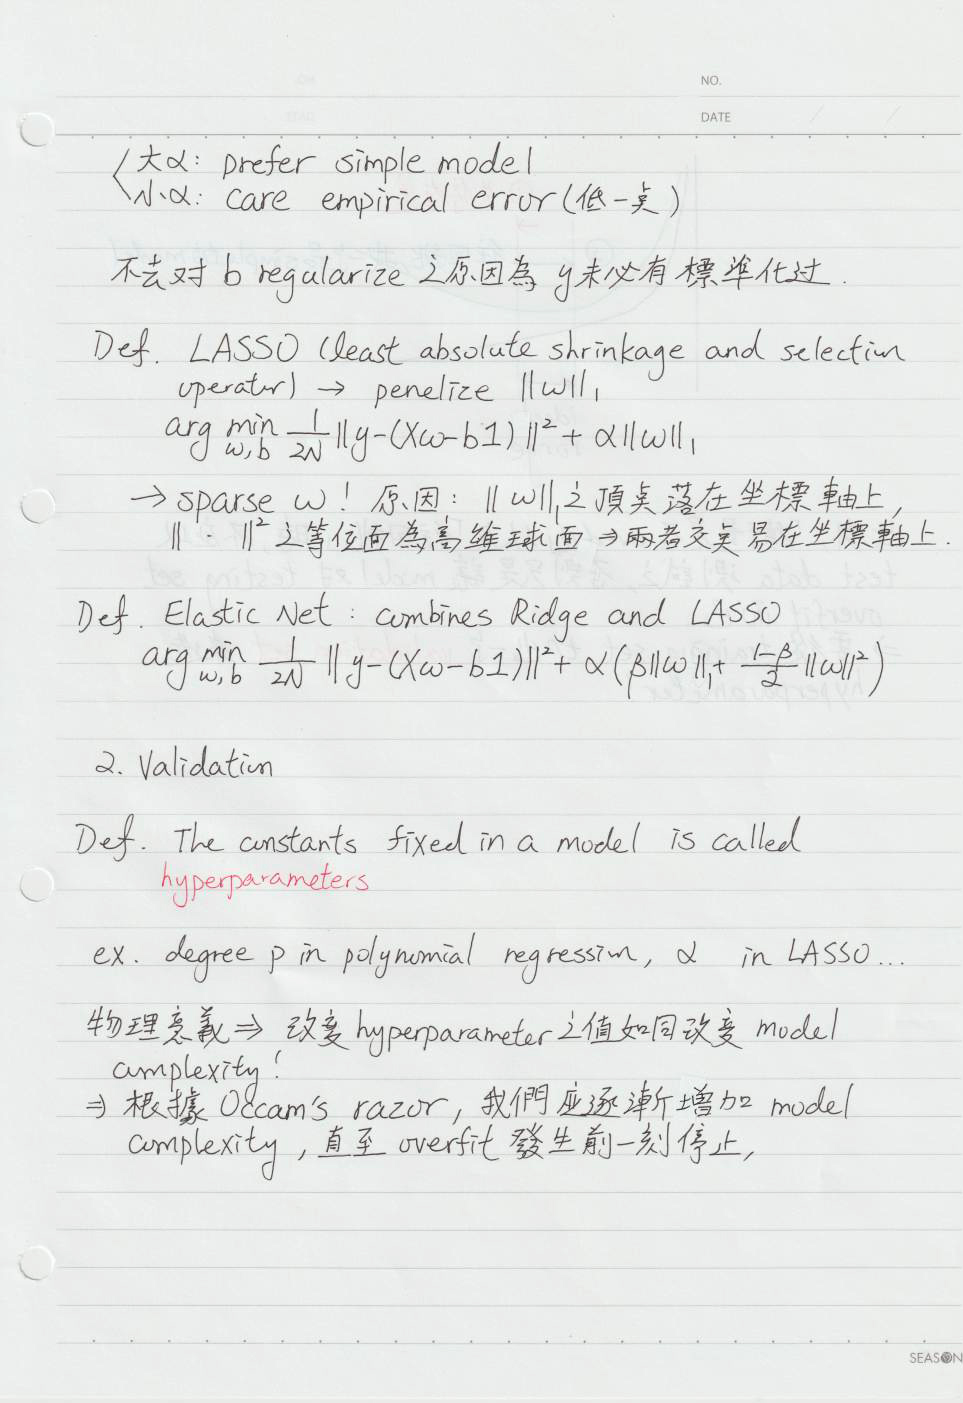 NO.
DATE
大α: prefer simple model
小α: care empirical error(低一点)
不去对 b regularize 之原因為 y未必有標準化过.
Def. LASSO (least absolute shrinkage and selection
operator) → penelize ||ω||₁
arg min_{ω,b} 1/2N ||y-(Xω-b1)||² + α||ω||₁
→ sparse ω! 原因: ||ω||₁之頂点落在坐標軸上,
||·||²之等位面為高維球面⇒兩者交点易在坐標軸上.
Def. Elastic Net: combines Ridge and LASSO
arg min_{ω,b} 1/2N ||y-(Xω-b1)||² + α(β||ω||₁ + 1-β/2 ||ω||²)
2. Validation
Def. The constants fixed in a model is called
hyperparameters
ex. degree p in polynomial regression, α in LASSO...
物理意義⇒ 改变hyperparameter之值如同改变 model
complexity!
⇒ 根據Occam's razor, 我們应逐漸增加 model
complexity, 直至 overfit 發生前一刻停止,
SEASON